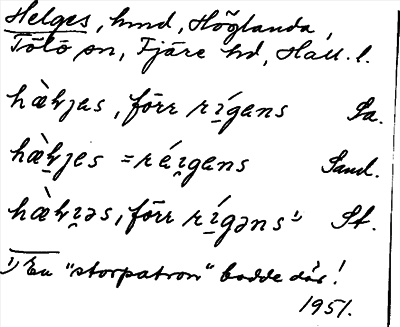 Helges, hmd, Höglanda,
Tölö sn, Fjäre hd, Hall. l.
hæ̀lɪ̯as, förr rɪ́gens Sa.
hæ̀lɪ̯es = réɪ̯gens Sand.
hæ̀lɪ̯əs, förr rɪ́gəns ¹⁾ St.
¹⁾ En "storpatron" bodde där!
1951.